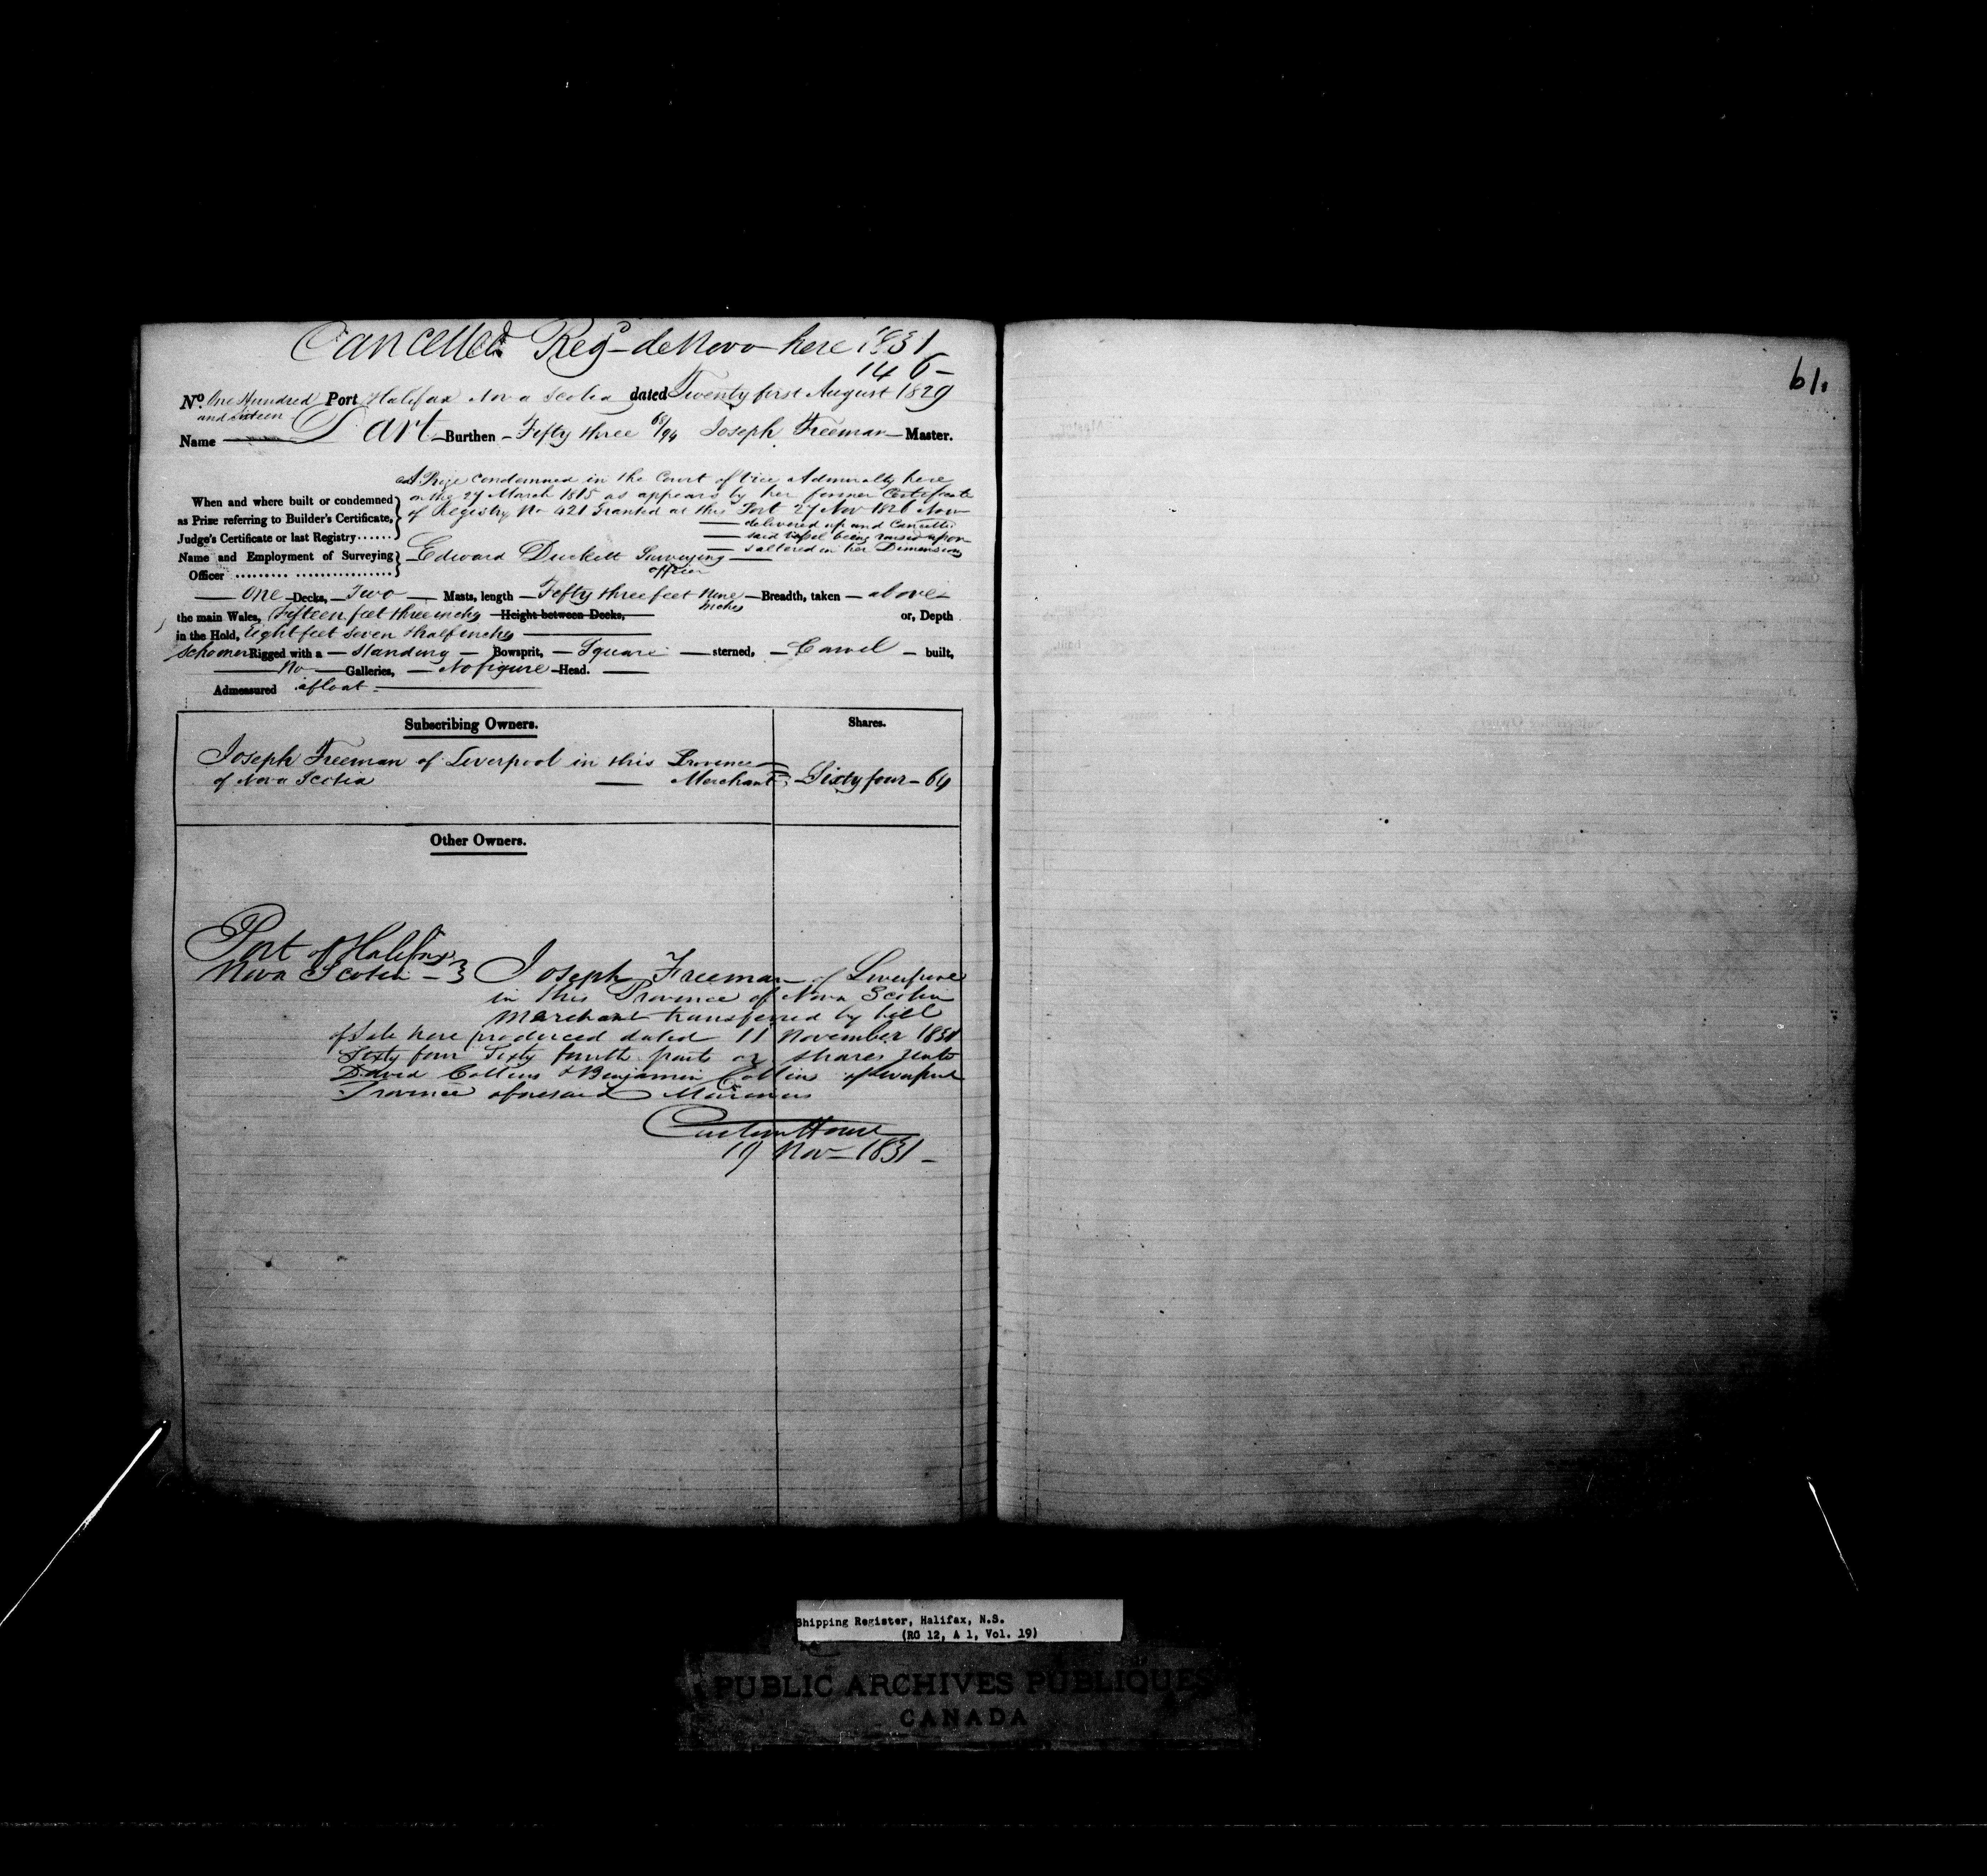 Cancelled Regd de Novo here 1831
146
No. One Hundred Port Halifax Nova Scotia dated Twenty first August 1829
and Sixteen
Name Dart Burthen Fifty three 68/94 Joseph Freeman Master.
A Prize condemned in the Court of Vice Admiralty here
When and where built or condemned on the 27 March 1815 as appears by her former Certificate
as Prize referring to Builder's Certificate, of Registry No 421 Granted at this Port 27 Nov 1826 Now
delivered up and Cancelled
Judge's Certificate or last Registry...... said Vessel being raised upon
& altered in her Dimensions
Name and Employment of Surveying Edward Duckett Surveying
Officer ......... ................ officer
One Decks, Two Masts, length Fifty three feet Nine Inches Breadth, taken above
the main Wales, Fifteen feet three inches Height between Decks, or, Depth
in the Hold, Eight feet seven & half inches
Schooner Rigged with a standing Bowsprit, Square sterned, Carvel built,
No Galleries, No figure Head.
Admeasured afloat
Subscribing Owners. Shares.
Joseph Freeman of Liverpool in this Province
of Nova Scotia Merchant Sixty four - 64
Other Owners.
Port of Halifax
Nova Scotia } Joseph Freeman of Liverpool
in this Province of Nova Scotia
Merchant transferred by bill
of Sale here produced dated 11 November 1831
Sixty four Sixty fourth parts or shares unto
David Collins & Benjamin Collins of Liverpool
Province aforesaid Mariners
Custom House
19 Nov 1831
61.
Shipping Register, Halifax, N.S.
(RG 12, A 1, Vol. 19)
PUBLIC ARCHIVES PUBLIQUES
CANADA